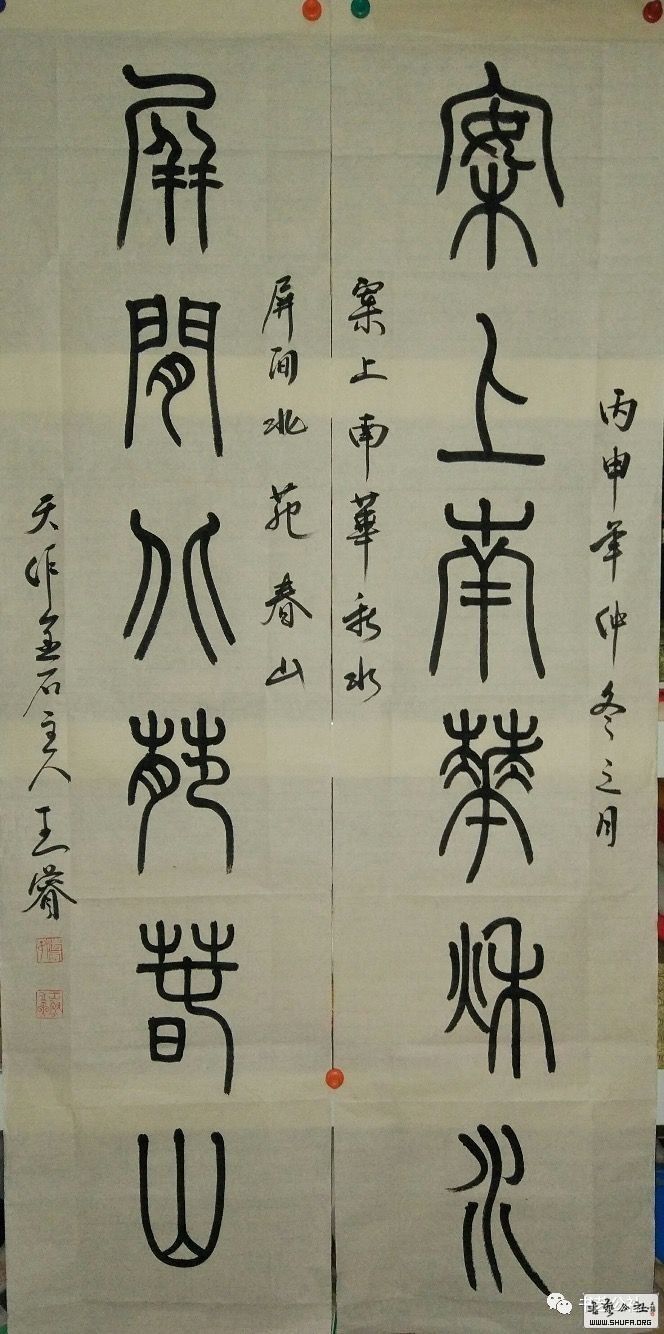 丙申年仲冬之月
案上南華秌水
案上南華秋水
屏间北苑春山
屏間北苑萅山
天作金石主人王睿
書藝公社
WWW.SHUFA.ORG